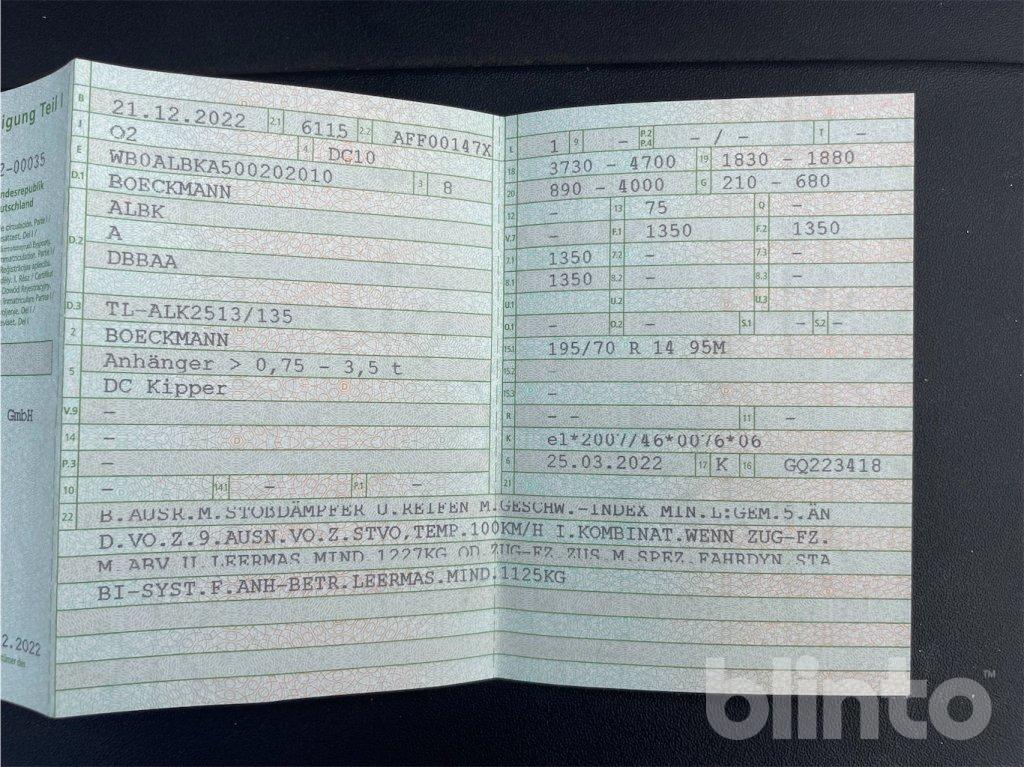 igung Teil I
2-00035
ndesrepublik
utschland
GmbH
2.2022
B 21.12.2022 2.1 6115 2.2 AFF00147X
J O2 4 DC10
E WB0ALBKA500202010 3 8
D.1 BOECKMANN
ALBK
D.2 A
DBBAA
D.3 TL-ALK2513/135
2 BOECKMANN
5 Anhänger > 0,75 - 3,5 t
DC Kipper
V.9 -
14 -
P.3 -
10 - 14.1 - P.1 -
L 1 9 - P.2 P.4 - / - T -
18 3730 - 4700 19 1830 - 1880
20 890 - 4000 G 210 - 680
12 - 13 75 Q -
V.7 - F.1 1350 F.2 1350
7.1 1350 7.2 - 7.3 -
8.1 1350 8.2 - 8.3 -
U.1 U.2 U.3
O.1 - O.2 - S.1 - S.2 -
15.1 195/70 R 14 95M
15.2 -
15.3 -
R - - 11 -
K e1*2007/46*0076*06
6 25.03.2022 17 K 16 GQ223418
21
22 B.AUSR.M.STOßDÄMPFER U.REIFEN M.GESCHW.-INDEX MIN.L:GEM.5.ÄN
D.VO.Z.9.AUSN.VO.Z.STVO,TEMP.100KM/H I.KOMBINAT.WENN ZUG-FZ.
M.ABV U.LEERMAS.MIND.1227KG OD.ZUG-FZ.ZUS.M.SPEZ.FAHRDYN.STA
BI-SYST.F.ANH-BETR.LEERMAS.MIND.1125KG
blinto™